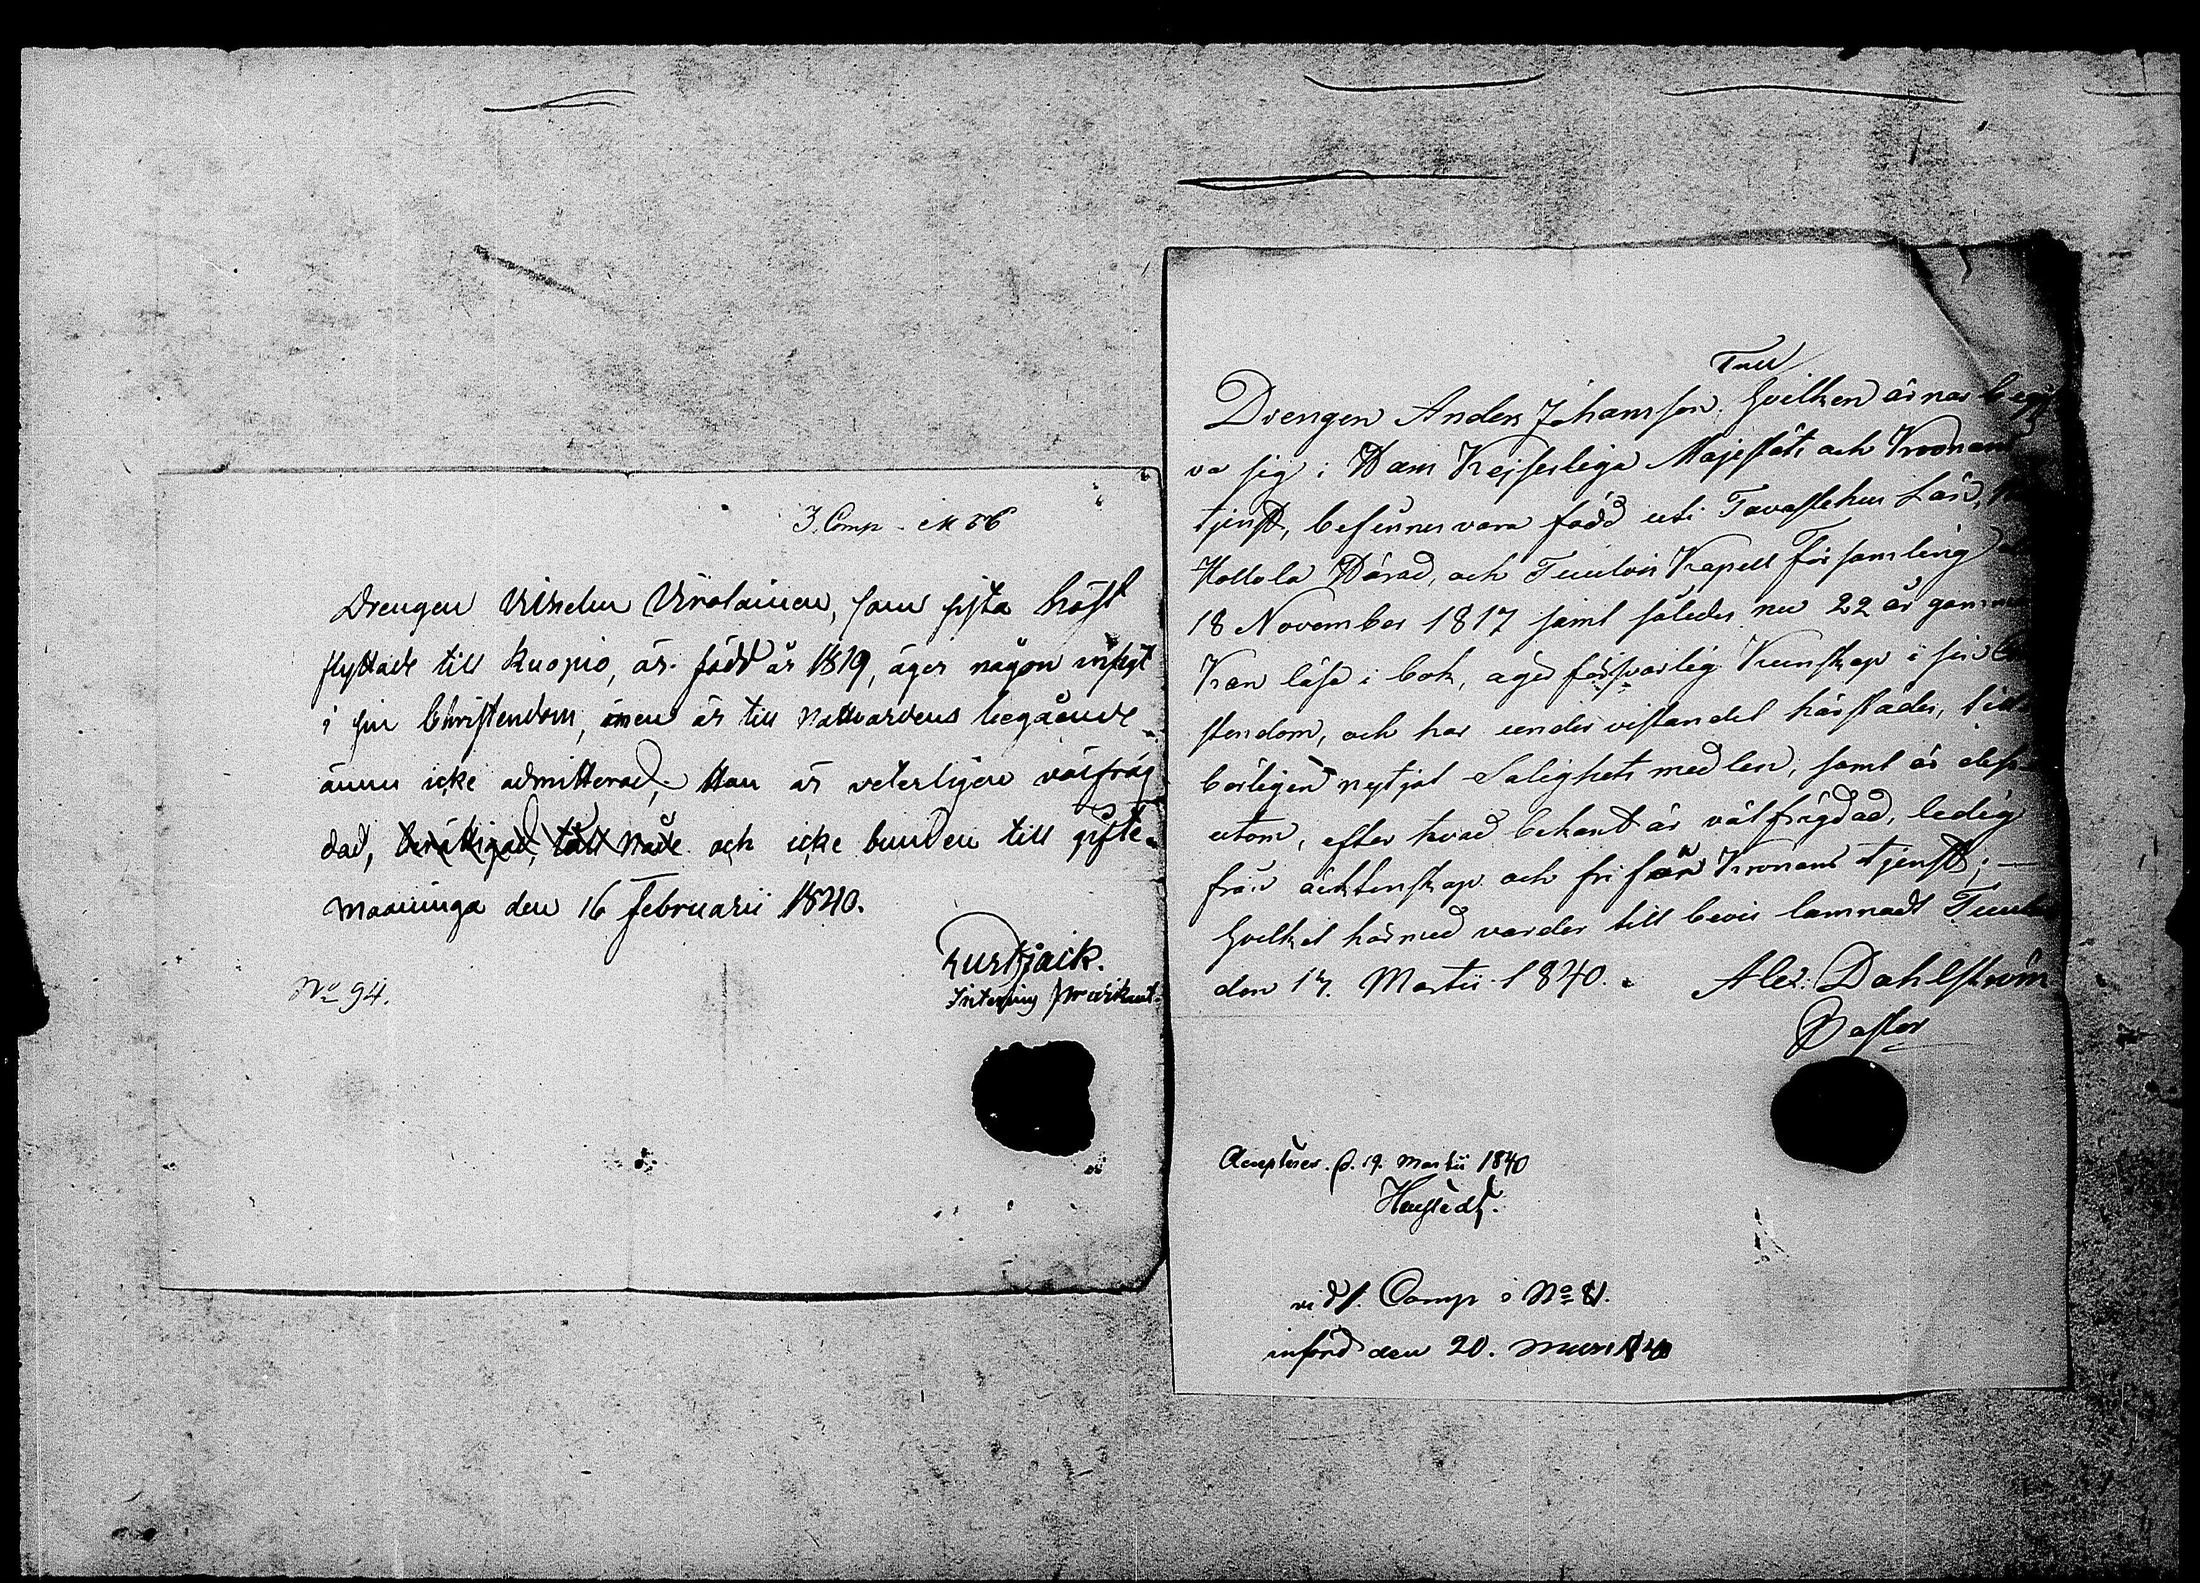 3. Comp. № 56
Drengen Vilhelm Virolainen, som sista höst
flyttade till Kuopio, är född år 1819, äger någon insigt
i sin Christendom, men är till Nattvardens begående
ännu icke admitterad; Han är veterligen välfräg
dad, och icke bunden till gifte.
Maaninga den 16 Februarii 1840.
Pastor
No 94.
Drengen Anders Johansson Hvilken ärnar begif
va sig i Hans Kejserliga Majestäts och Kronans
tjenst, befinnes vara född uti Tavastehus Län,
Hollola Härad, och Tuulois Kapell Församling
18 November 1817 samt således nu 22 år gammal
Kan läsa i bok, äger försvarlig Kunskap i sin
stendom, och har under vistandet härstädes,
börligen nytjat Salighets medlen, samt är
utom, efter hvad bekant är välfrägdad, ledig
från äcktenskap och fri från Kronans tjenst; —
Hvilket härmed varder till bevis lämnadt
den 17. Martii 1840. Alex: Dahlström
Pastor
Accepteres. d. 19. Martii 1840
vid 1. Comp å No 81.
införd den 20. Mars 1840